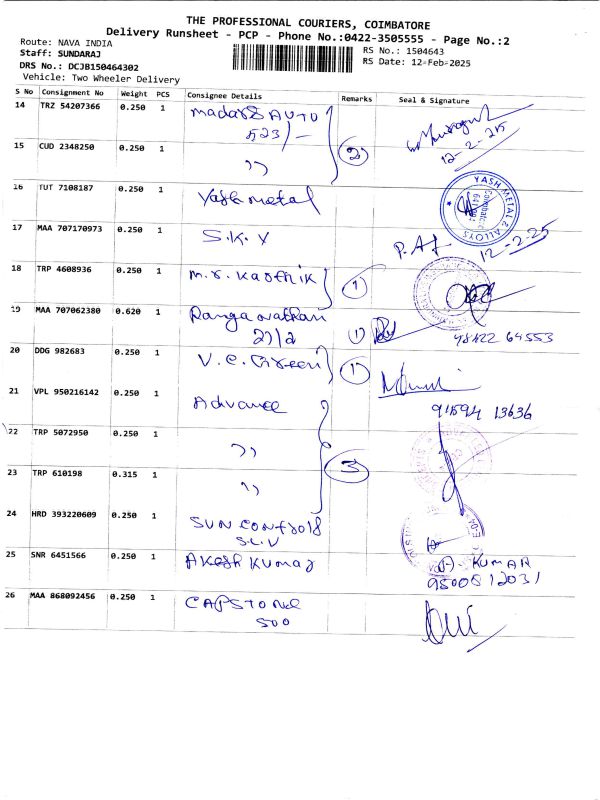 THE PROFESSIONAL COURIERS, COIMBATORE
Delivery Runsheet - PCP - Phone No.:0422-3505555 - Page No.:2
Route: NAVA INDIA
Staff: SUNDARAJ
RS No.: 1504643
DRS No.: DCJB150464302
RS Date: 12-Feb-2025
Vehicle: Two Wheeler Delivery
S No Consignment No Weight PCS Consignee Details Remarks Seal & Signature
14 TRZ 54207366 0.250 1 Madars AUTO
523/-
12-2-25
15 CUD 2348250 0.250 1 ,, 2
16 TUT 7108187 0.250 1 Yash metal
YASH METAL & ALLOYS
17 MAA 707170973 0.250 1 S.K.Y
12-2-25
18 TRP 4608936 0.250 1 M.S. Karthik 1
19 MAA 707062380 0.620 1 Ranganathan 1
21/2
98422 64553
20 DDG 982683 0.250 1 V.C. Green 1
21 VPL 950216142 0.250 1 Advance
91594 13636
22 TRP 5072950 0.250 1 ,,
23 TRP 610198 0.315 1 ,, 3
24 HRD 393220609 0.250 1 SUN CONTROLS
S.L.V
25 SNR 6451566 0.250 1 Akesh Kumar
A. KUMAR
9500812031
26 MAA 868092456 0.250 1 CAPSTONE
500